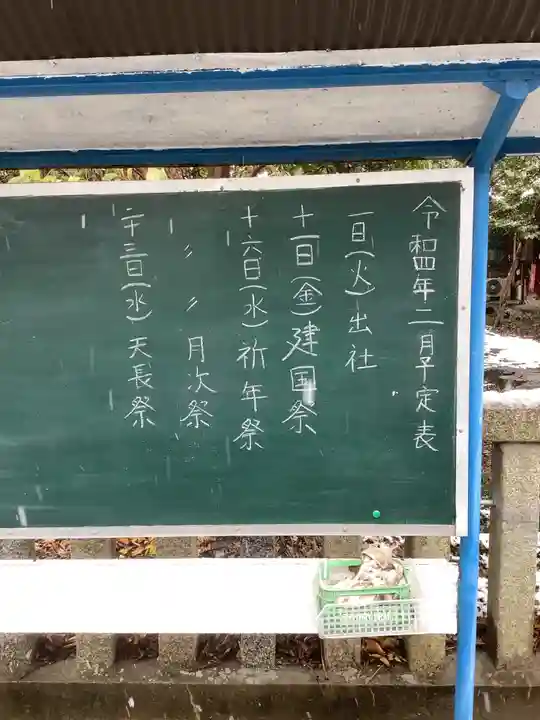 令和四年二月予定表
一日(火)出社
十一日(金)建国祭
十六日(水)祈年祭
〃 〃 月次祭
二十三日(水)天長祭